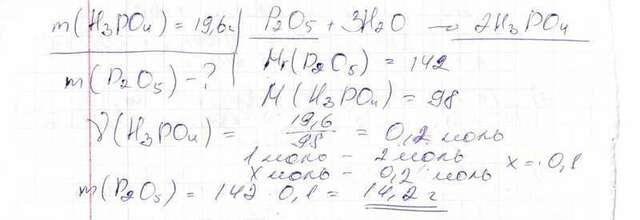 m(H₃PO₄) = 19,6г P₂O₅ + 3H₂O → 2H₃PO₄
m(P₂O₅) - ? Mr(P₂O₅) = 142
M(H₃PO₄) = 98
γ(H₃PO₄) = 19,6/98 = 0,2 моль
1 моль - 2 моль
x моль - 0,2 моль x = 0,1
m(P₂O₅) = 142 · 0,1 = 14,2 г